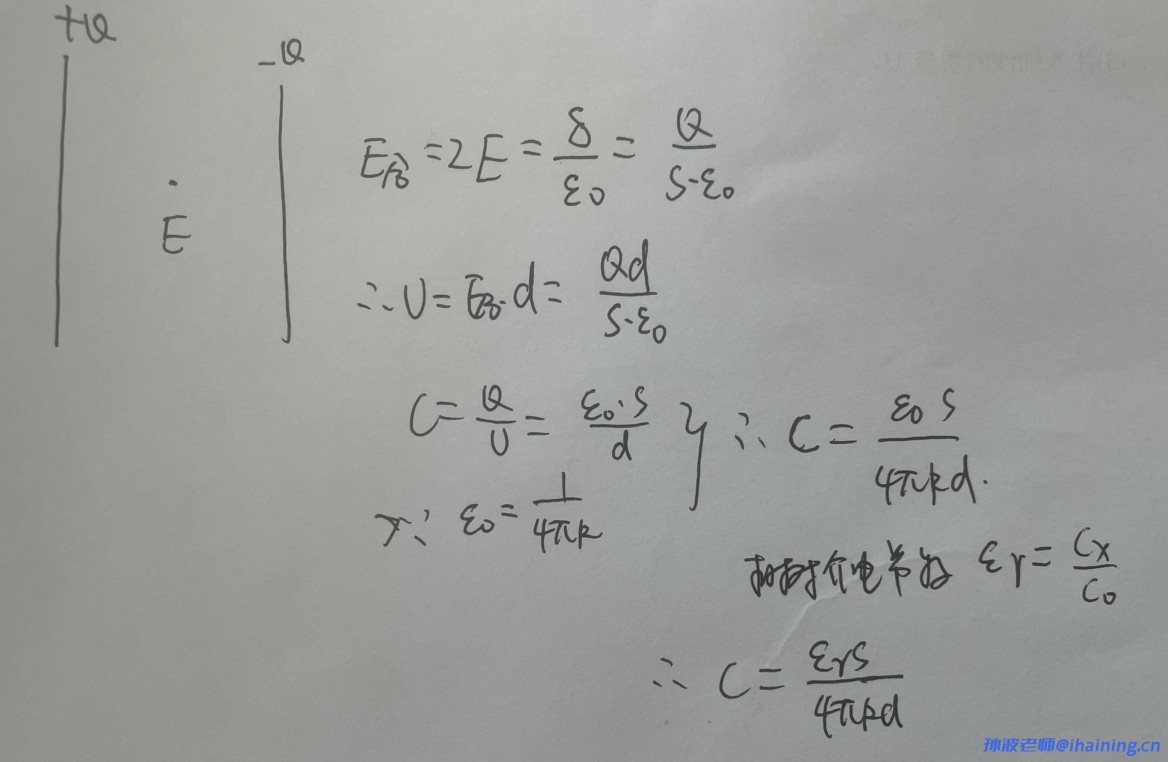 +Q
-Q
E
E合 = 2E = δ/ε₀ = Q/(S·ε₀)
∴ U = E合·d = Qd/(S·ε₀)
C = Q/U = ε₀·S/d } ∴ C = ε₀S/(4πkd).
又∵ ε₀ = 1/(4πk)
相对介电常数 εr = Cx/C₀
∴ C = εrS/(4πkd)
孙波老师@ihaining.cn